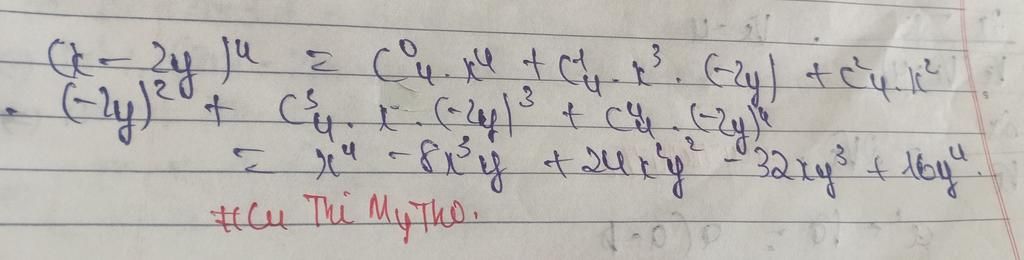 (x - 2y)⁴ = C⁰₄.x⁴ + C¹₄.x³.(-2y) + C²₄.x²
.(-2y)² + C³₄.x.(-2y)³ + C⁴₄.(-2y)⁴
= x⁴ - 8x³y + 24x²y² - 32xy³ + 16y⁴.
#Cu Thi My Tho.